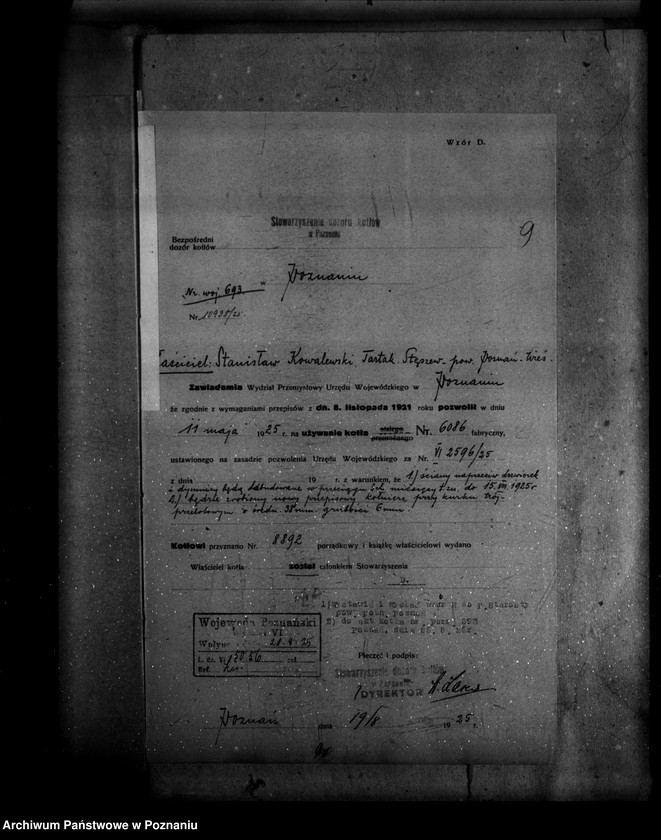 Wzór D.
Stowarzyszenie dozoru kotłów
w Poznaniu
9
Bezpośredni
dozór kotłów
w Poznaniu
Nr. woj. 693
Nr. 10938/25
aściciel: Stanisław Kowalewski, Tartak. Stęszew- pow. Poznań-
Zawiadamia Wydział Przemysłowy Urzędu Wojewódzkiego w Poznaniu
że zgodnie z wymaganiami przepisów z dn. 8. listopada 1921 roku pozwolił w dniu
11 maja 1925 r. na używanie kotła Nr. 6086 fabryczny,
ustawionego na zasadzie pozwolenia Urzędu Wojewódzkiego za Nr. VI 2596/25
z dnia 19 r. z warunkiem, że 1.) ściany naprzeciw drzwiczek
i dymnicy będą odbudowane w przeciągu do 15.VIII 1925 r
2.) będzie zrobiony nowy przepisowy kołnierz przy kurku trój-
przelotowym o średn. 38 mm. grubości 6 mm.
Kotłowi przyznano Nr. 8892 porządkowy i książkę właścicielowi wydano
Właściciel kotła został członkiem Stowarzyszenia
D.
Wojewoda Poznański
VI
Wpłyn. 20.8.25
L. dz. VI 13056 zał
Ref.
Pieczęć i podpis:
Stowarzyszenie dozoru kotłów
w Poznaniu
DYREKTOR
Poznań dnia 19/8 1925 r.
Archiwum Państwowe w Poznaniu